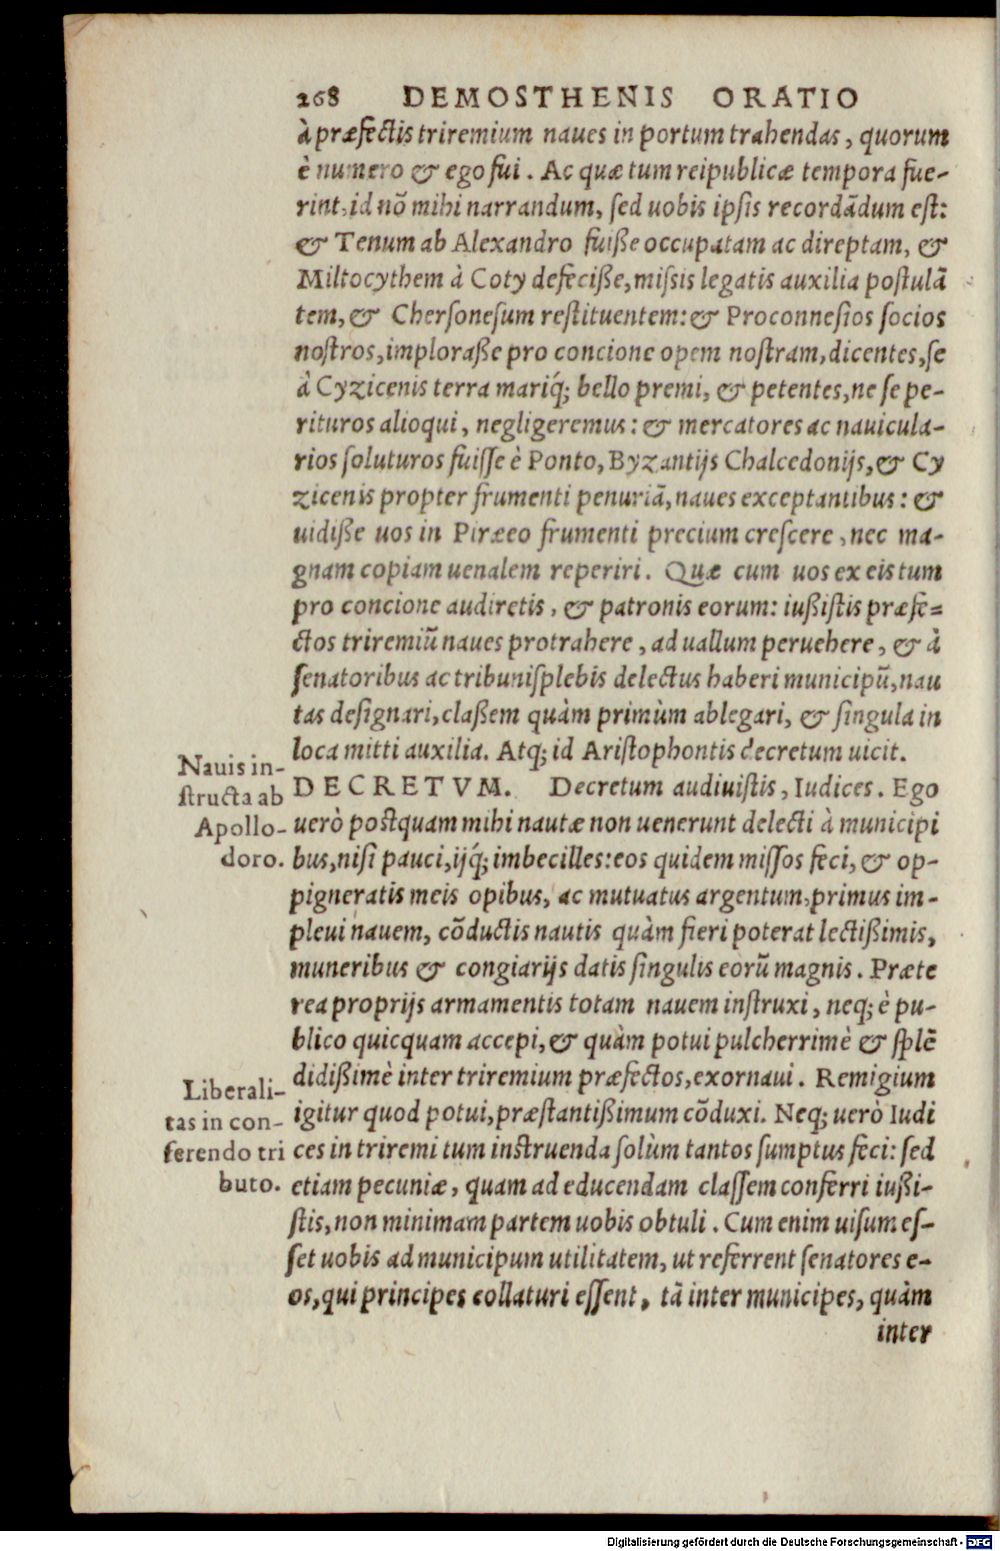 268 DEMOSTHENIS ORATIO
à præfectis triremium naues in portum trahendas, quorum
è numero & ego fui. Ac quæ tum reipublicæ tempora fue-
rint, id nō mihi narrandum, sed uobis ipsis recordādum est:
& Tenum ab Alexandro fuiße occupatam ac direptam, &
Miltocythem à Coty defeciße, missis legatis auxilia postulā
tem, & Chersonesum restituentem: & Proconnesios socios
nostros, imploraße pro concione opem nostram, dicentes, se
à Cyzicenis terra mariq́; bello premi, & petentes, ne se pe-
rituros alioqui, negligeremus: & mercatores ac nauicula-
rios soluturos fuisse è Ponto, Byzantijs Chalcedonijs, & Cy
zicenis propter frumenti penuriā, naues exceptantibus: &
uidiße uos in Piræeo frumenti precium crescere, nec ma-
gnam copiam uenalem reperiri. Quæ cum uos ex eis tum
pro concione audiretis, & patronis eorum: iußistis præfe=
ctos triremiū naues protrahere, ad uallum peruehere, & à
senatoribus ac tribunisplebis delectus haberi municipū, nau
tas designari, claßem quàm primùm ablegari, & singula in
loca mitti auxilia. Atq; id Aristophontis decretum uicit.
DECRETVM. Decretum audiuistis, Iudices. Ego
uerò postquam mihi nautæ non uenerunt delecti à municipi
bus, nisi pauci, ijq́; imbecilles: eos quidem missos feci, & op-
pigneratis meis opibus, ac mutuatus argentum, primus im-
pleui nauem, cōductis nautis quàm fieri poterat lectißimis,
muneribus & congiarijs datis singulis eorū magnis. Præte
rea proprijs armamentis totam nauem instruxi, neq; è pu-
blico quicquam accepi, & quàm potui pulcherrimè & splē
didißimè inter triremium præfectos, exornaui. Remigium
igitur quod potui, præstantißimum cōduxi. Neq; uerò Iudi
ces in triremi tum instruenda solùm tantos sumptus feci: sed
etiam pecuniæ, quam ad educendam classem conferri iußi-
stis, non minimam partem uobis obtuli. Cum enim uisum es-
set uobis ad municipum utilitatem, ut referrent senatores e-
os, qui principes collaturi essent, tā inter municipes, quàm
inter
Nauis in-
structa ab
Apollo-
doro.
Liberali-
tas in con-
ferendo tri
buto.
Digitalisierung gefördert durch die Deutsche Forschungsgemeinschaft - DFG